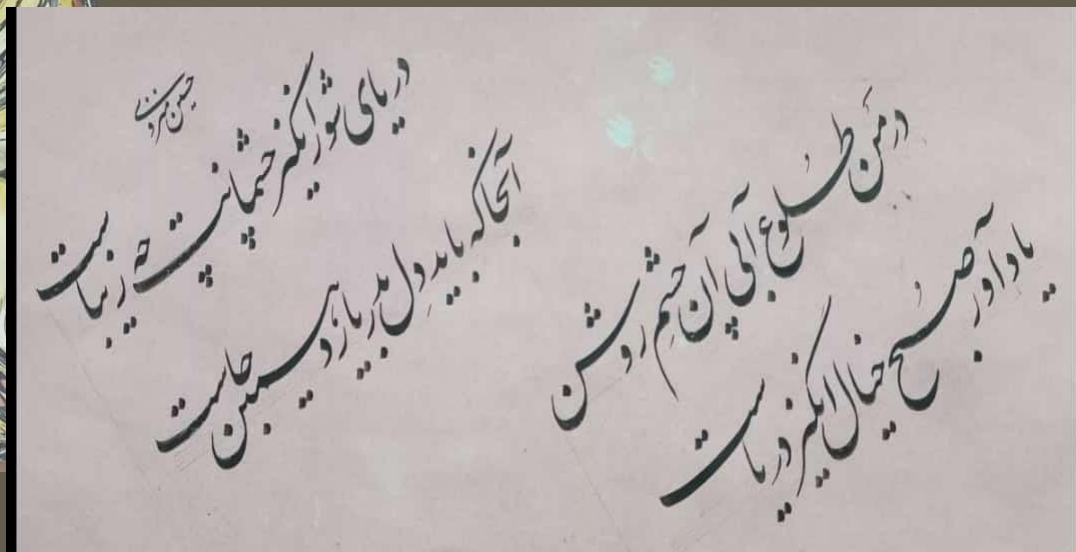 دریای شورانگیز چشمانت چه زیباست
آنجا که باید دل به دریا زد همین جاست
در من طلوع آبی آن چشم روشن
یادآور صبح خیال انگیز دریاست
حسین منزوی